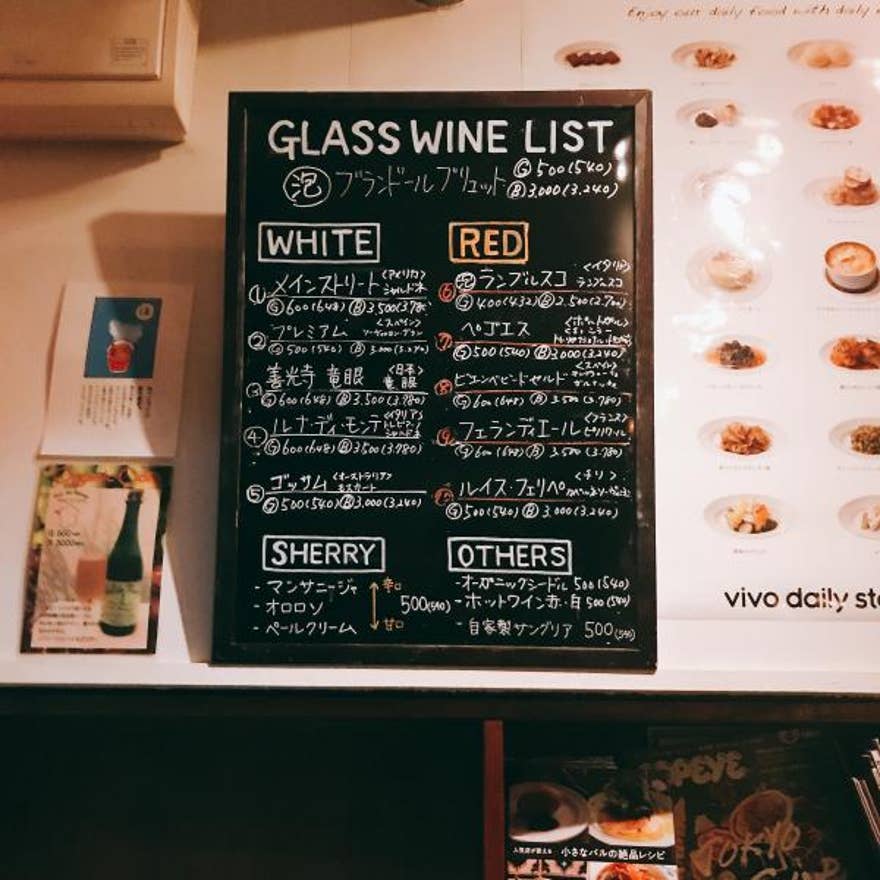 Enjoy our daily food with daily
GLASS WINE LIST
泡 ブランドールブリュット G 500(540)
B 3,000(3,240)
WHITE
① メインストリート <アメリカ> シャルドネ
G 600(648) B 3,500(3,780
② プレミアム <スペイン> ソーヴィニヨン・ブラン
G 500(540) B 3,000(3,240)
③ 善光寺 竜眼 <日本> 竜眼
G 600(648) B 3,500(3,780)
④ ルナ・ディ・モンテ <イタリア> トレビアーノ シャルドネ
G 600(648) B 3,500(3,780)
⑤ ゴッサム <オーストラリア> モスカート
G 500(540) B 3,000(3,240)
RED
⑥ 泡 ランブルスコ <イタリア> ランブルスコ
G 400(432) B 2,500(2,700)
⑦ ペゴエス <ポルトガル>
G 500(540) B 3,000(3,240)
⑧ ビエンベビードセルド <スペイン>
G 600(648) B 3,500(3,780)
⑨ フェランディエール <フランス> ピノノワール
G 600(648) B 3,500(3,780)
⑩ ルイス・フェリペ <チリ>
G 500(540) B 3,000(3,240)
SHERRY
- マンサニージャ 辛口
- オロロソ 500(540)
- ペールクリーム 甘口
OTHERS
- オーガニックシードル 500(540)
- ホットワイン赤・白 500(540)
- 自家製サングリア 500(540)
vivo daily st
POPEYE
小さなバルの絶品レシピ
TOKYO